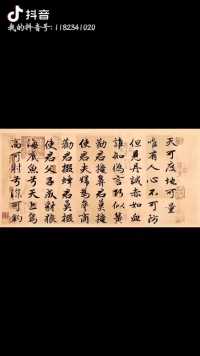 抖音
我的抖音号: 1182341020
天可度地可量
唯有人心不可防
但見丹誠赤如血
誰知偽言巧似簧
勸君掩鼻君莫掩
使君夫婦為參商
勸君掇蜂君莫掇
使君父子成豺狼
海底魚兮天上鳥
高可射兮深可釣